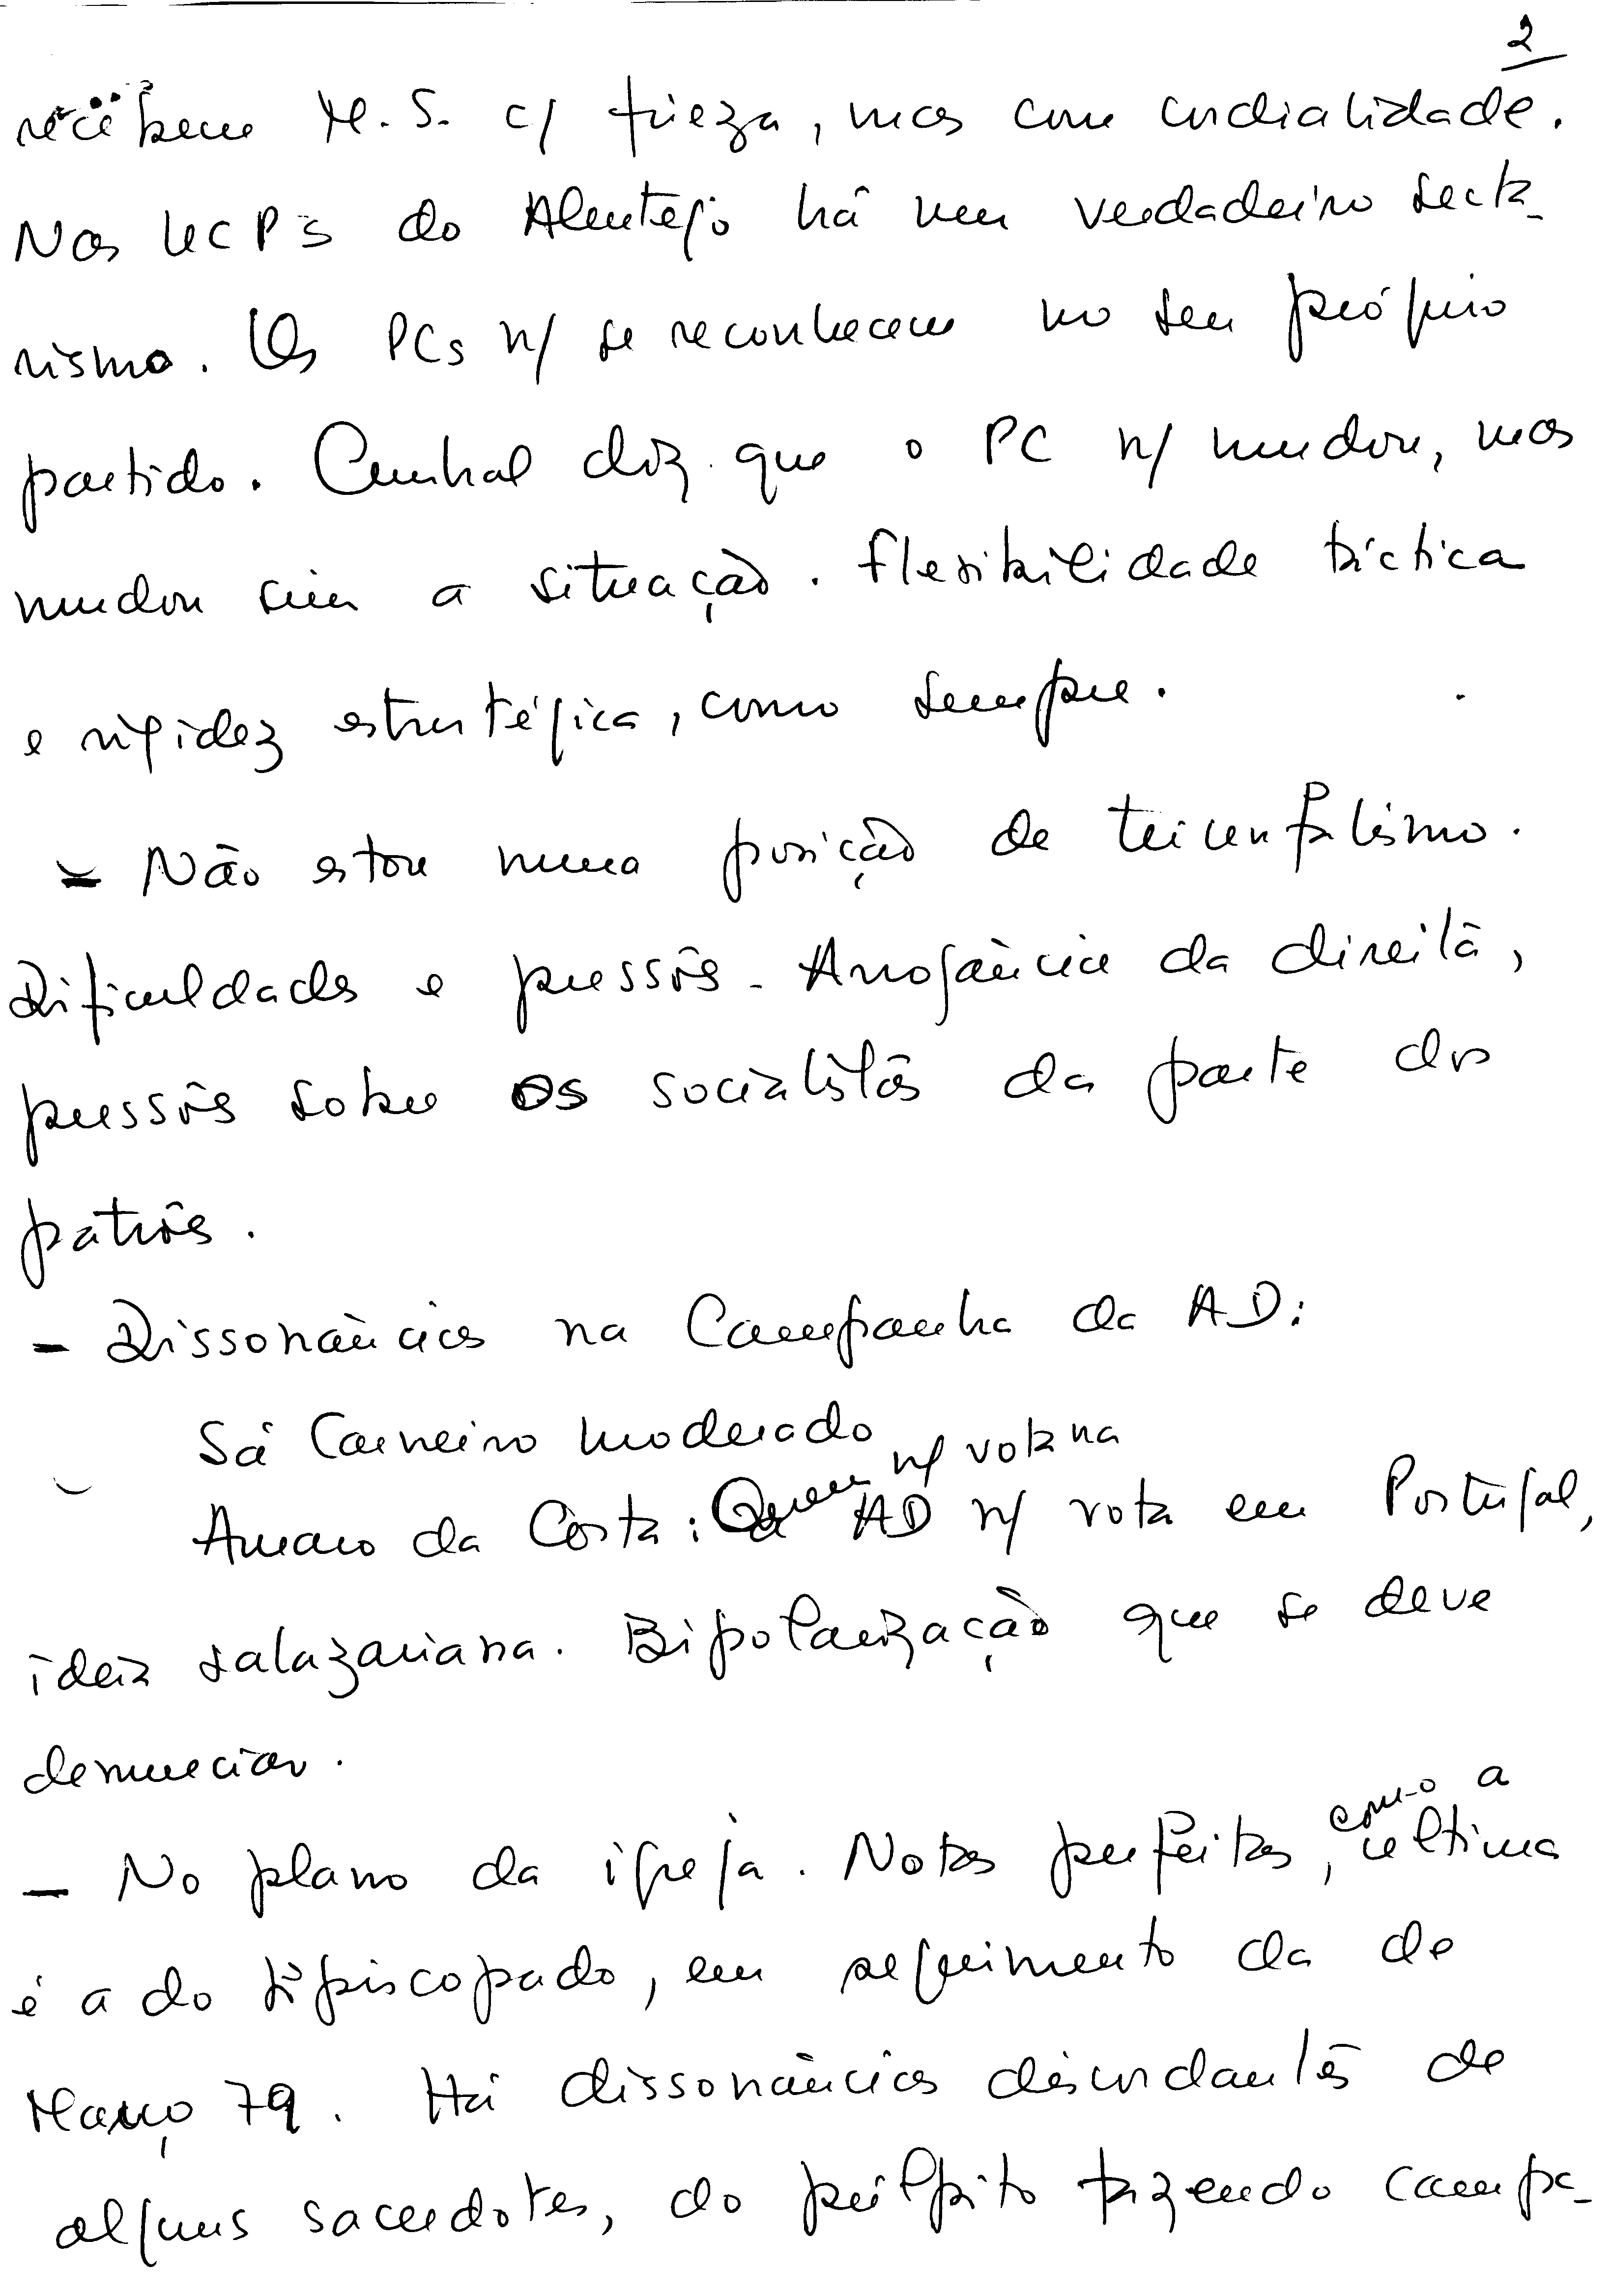 2
recebem M. S. c/ frieza, mas com cordialidade.
Nas UCP's do Alentejo há um verdadeiro secta-
rismo. Os PCs n/ se reconhecem no seu próprio
partido. Cunhal diz que o PC n/ mudou, mas
mudou sim a situação. Flexibilidade táctica
e rigidez estratégica, como sempre.
- Não estou numa posição de triunfalismo.
Dificuldades e pressões. Arrogância da direita,
pressões sobre os socialistas da parte dos
patrões.
- Dissonâncias na Campanha da AD:
Sá Carneiro moderado
Amaro da Costa: Quem n/ vota na AD n/ vota em Portugal,
ideia salazariana. Bipolarização que se deve
denunciar.
- No plano da igreja. Notas perfeitas, como a última
é a do Episcopado, em seguimento da de
Março 79. Há dissonâncias discordantes de
alguns sacerdotes, do púlpito fazendo campa-